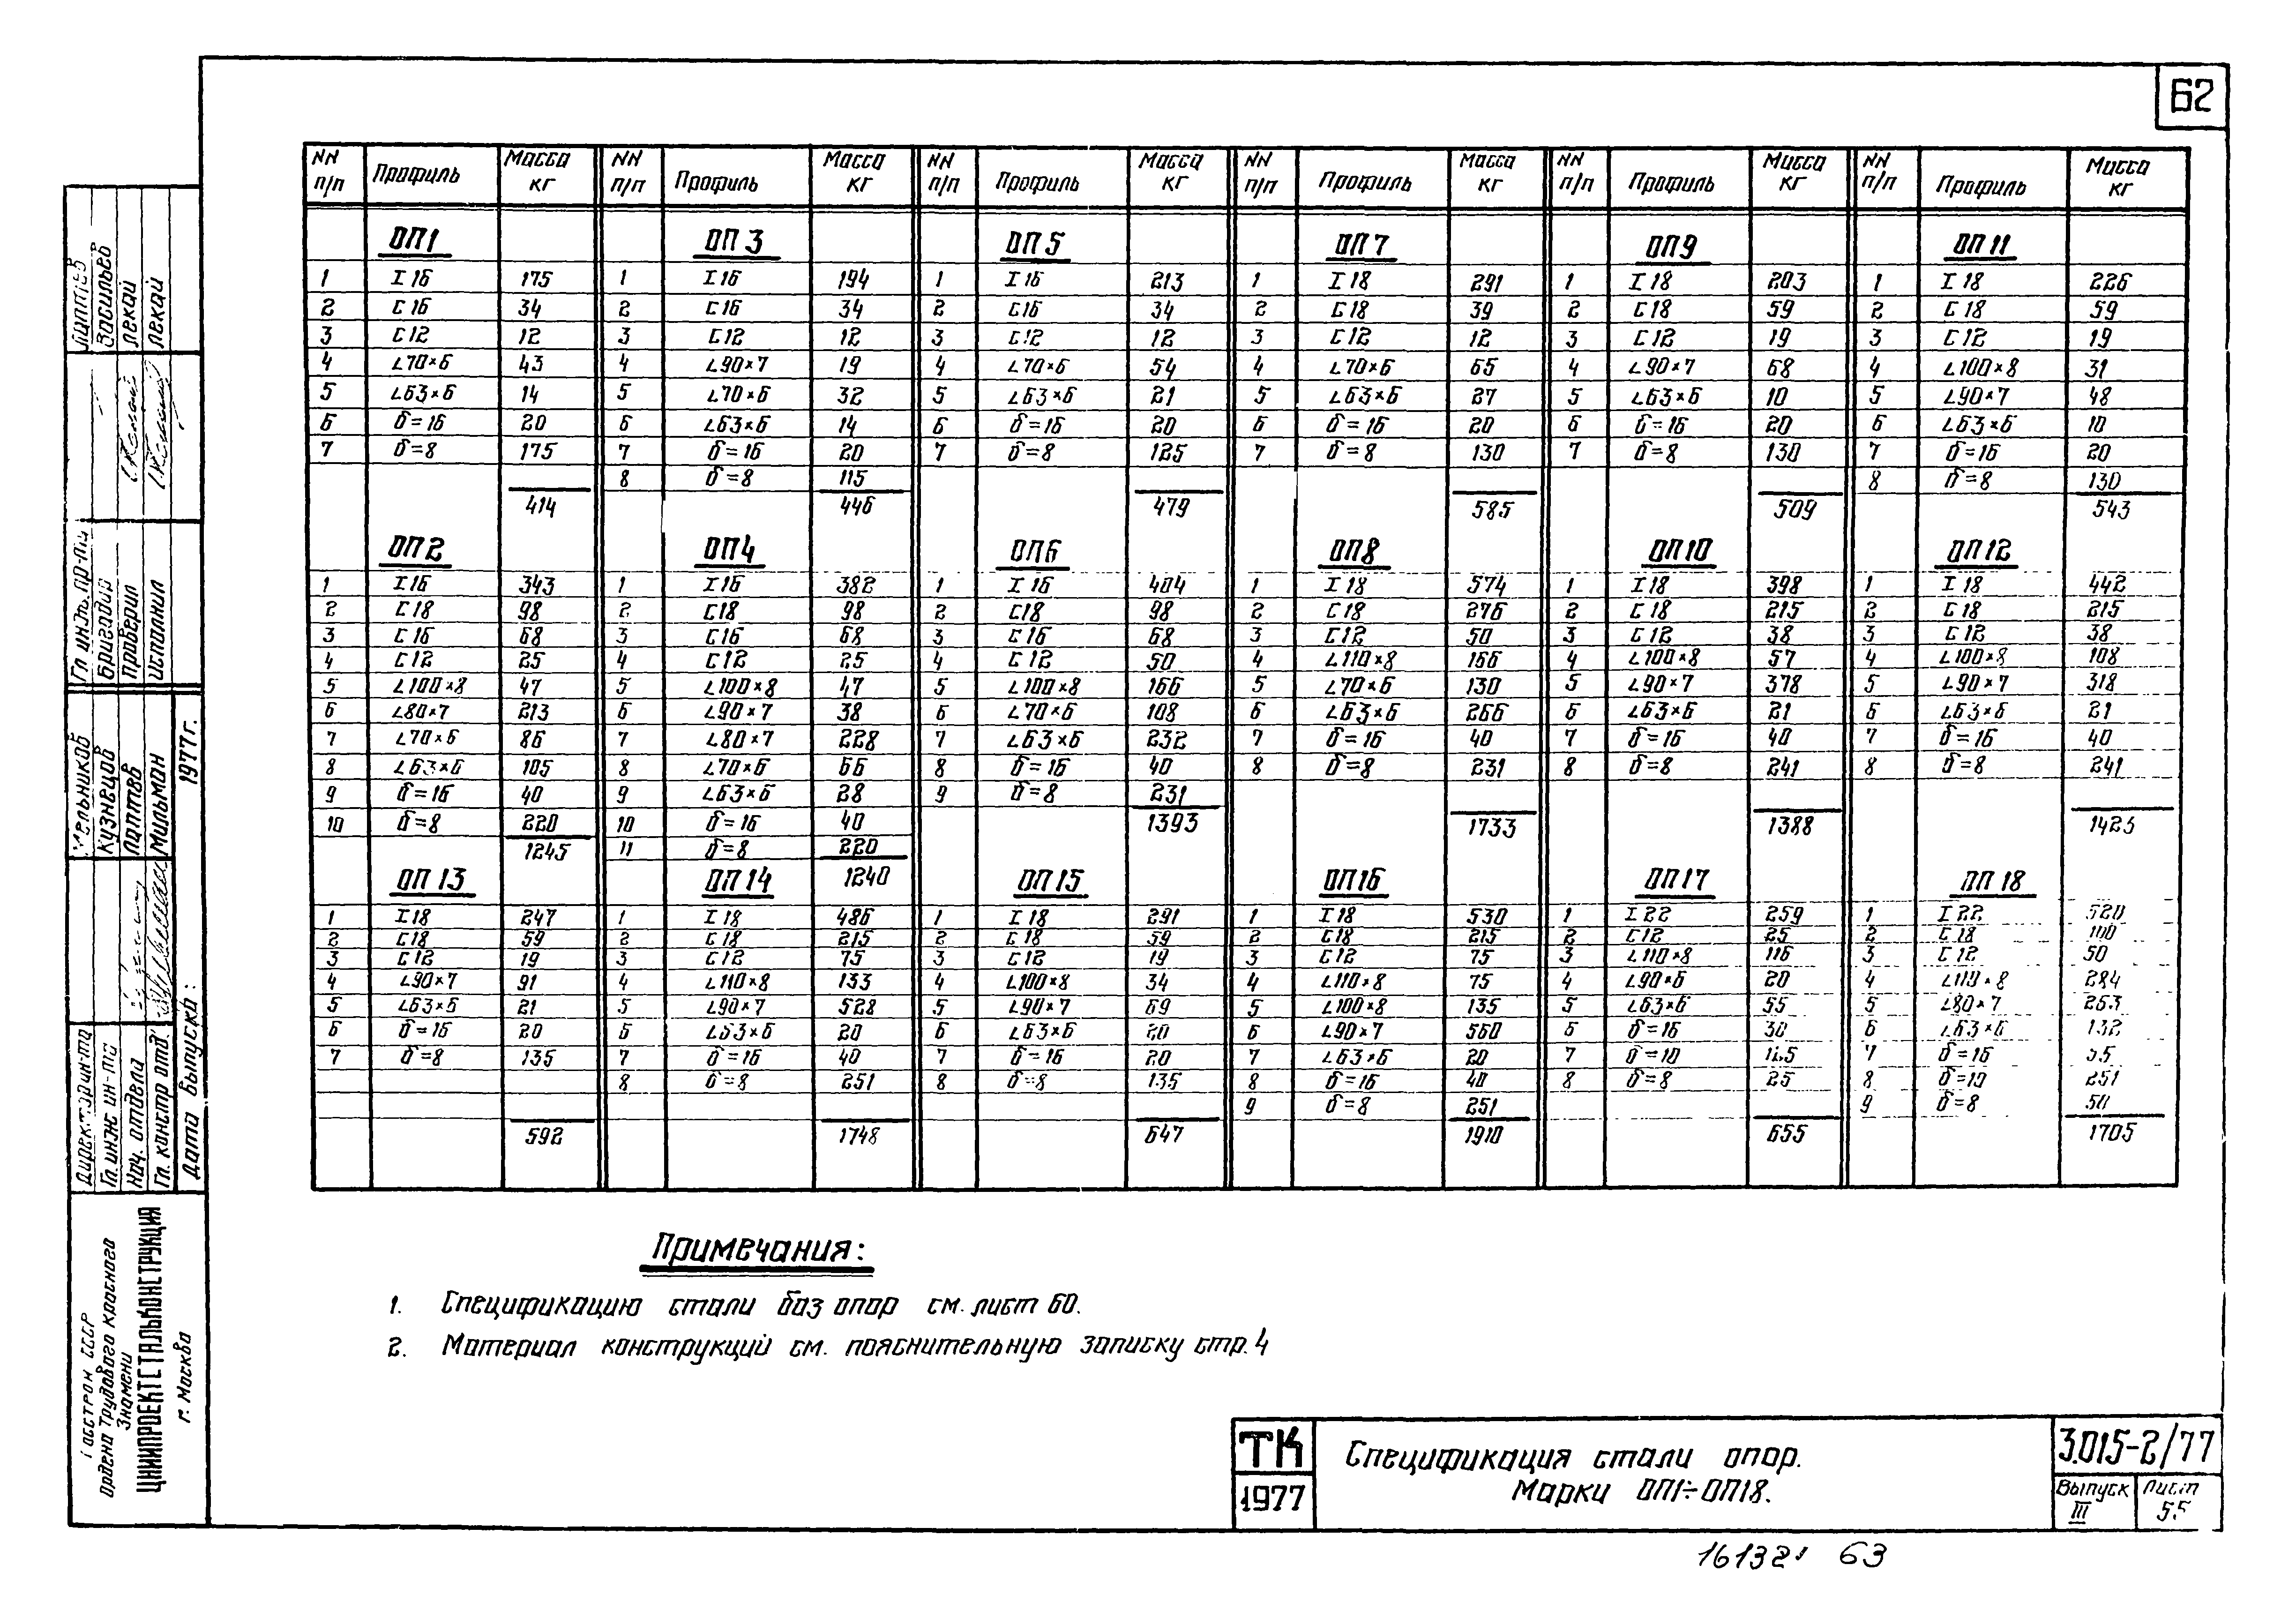 62
NN п/п Профиль Масса кг NN п/п Профиль Масса кг NN п/п Профиль Масса кг NN п/п Профиль Масса кг NN п/п Профиль Масса кг NN п/п Профиль Масса кг
ОП1 ОП3 ОП5 ОП7 ОП9 ОП11
1 I 16 175 1 I 16 194 1 I 16 213 1 I 18 291 1 I 18 203 1 I 18 226
2 С 16 34 2 С 16 34 2 С 16 34 2 С 18 39 2 С 18 59 2 С 18 59
3 С 12 12 3 С 12 12 3 С 12 12 3 С 12 12 3 С 12 19 3 С 12 19
4 ∟70×6 43 4 ∟90×7 19 4 ∟70×6 54 4 ∟70×6 65 4 ∟90×7 68 4 ∟100×8 31
5 ∟63×6 14 5 ∟70×6 32 5 ∟63×6 21 5 ∟63×6 27 5 ∟63×6 10 5 ∟90×7 48
6 δ=16 20 6 ∟63×6 14 6 δ=16 20 6 δ=16 20 6 δ=16 20 6 ∟63×6 10
7 δ=8 175 7 δ=16 20 7 δ=8 125 7 δ=8 130 7 δ=8 130 7 δ=16 20
8 δ=8 115 8 δ=8 130
414 446 479 585 509 543
ОП2 ОП4 ОП6 ОП8 ОП10 ОП12
1 I 16 343 1 I 16 382 1 I 16 404 1 I 18 574 1 I 18 398 1 I 18 442
2 С 18 98 2 С 18 98 2 С 18 98 2 С 18 276 2 С 18 215 2 С 18 215
3 С 16 68 3 С 16 68 3 С 16 68 3 С 12 50 3 С 12 38 3 С 12 38
4 С 12 25 4 С 12 25 4 С 12 50 4 ∟110×8 166 4 ∟100×8 57 4 ∟100×8 108
5 ∟100×8 47 5 ∟100×8 47 5 ∟100×8 166 5 ∟70×6 130 5 ∟90×7 378 5 ∟90×7 318
6 ∟80×7 213 6 ∟90×7 38 6 ∟70×6 108 6 ∟63×6 266 6 ∟63×6 21 6 ∟63×6 21
7 ∟70×6 86 7 ∟80×7 228 7 ∟63×6 232 7 δ=16 40 7 δ=16 40 7 δ=16 40
8 ∟63×6 105 8 ∟70×6 66 8 δ=16 40 8 δ=8 231 8 δ=8 241 8 δ=8 241
9 δ=16 40 9 ∟63×6 28 9 δ=8 231
10 δ=8 220 10 δ=16 40 1393 1733 1388
1245 11 δ=8 220
1240
ОП13 ОП14 ОП15 ОП16 ОП17 ОП18
1 I 18 247 1 I 18 486 1 I 18 291 1 I 18 530 1 I 22 259 1 I 22 520
2 С 18 59 2 С 18 215 2 С 18 59 2 С 18 215 2 С 12 25 2 С 18 100
3 С 12 19 3 С 12 75 3 С 12 19 3 С 12 75 3 ∟110×8 116 3 С 12 50
4 ∟90×7 91 4 ∟110×8 133 4 ∟100×8 34 4 ∟110×8 75 4 ∟90×6 20 4 ∟110×8 284
5 ∟63×6 21 5 ∟90×7 528 5 ∟90×7 69 5 ∟100×8 135 5 ∟63×6 55 5 ∟80×7 263
6 δ=16 20 6 ∟63×6 20 6 ∟63×6 20 6 ∟90×7 560 6 δ=16 30 6 ∟63×6 132
7 δ=8 135 7 δ=16 40 7 δ=16 20 7 ∟63×6 20 7 δ=10 7 δ=16
8 δ=8 251 8 δ=8 135 8 δ=16 40 8 δ=8 25 8 δ=10 251
9 δ=8 251 9 δ=8 50
592 1748 647 1910 655 1705
Примечания:
1. Спецификацию стали баз опор см. лист 60.
2. Материал конструкций см. пояснительную записку стр. 4
ТК
1977
Спецификация стали опор.
Марки ОП1÷ОП18.
3.015-2/77
Выпуск III
Лист 55
63
Васильев
Лекай
Лекай
Гл. инж. пр-та
Бригадир
Проверил
Исполнил
Мельников
Кузнецов
Лаптев
Мильман
1977г.
Директор ин-та
Гл. инж. ин-та
Нач. отдела
Гл. констр. отд.
Дата выпуска:
Госстрой СССР
Ордена Трудового Красного
Знамени
ЦНИИПРОЕКТСТАЛЬКОНСТРУКЦИЯ
г. Москва